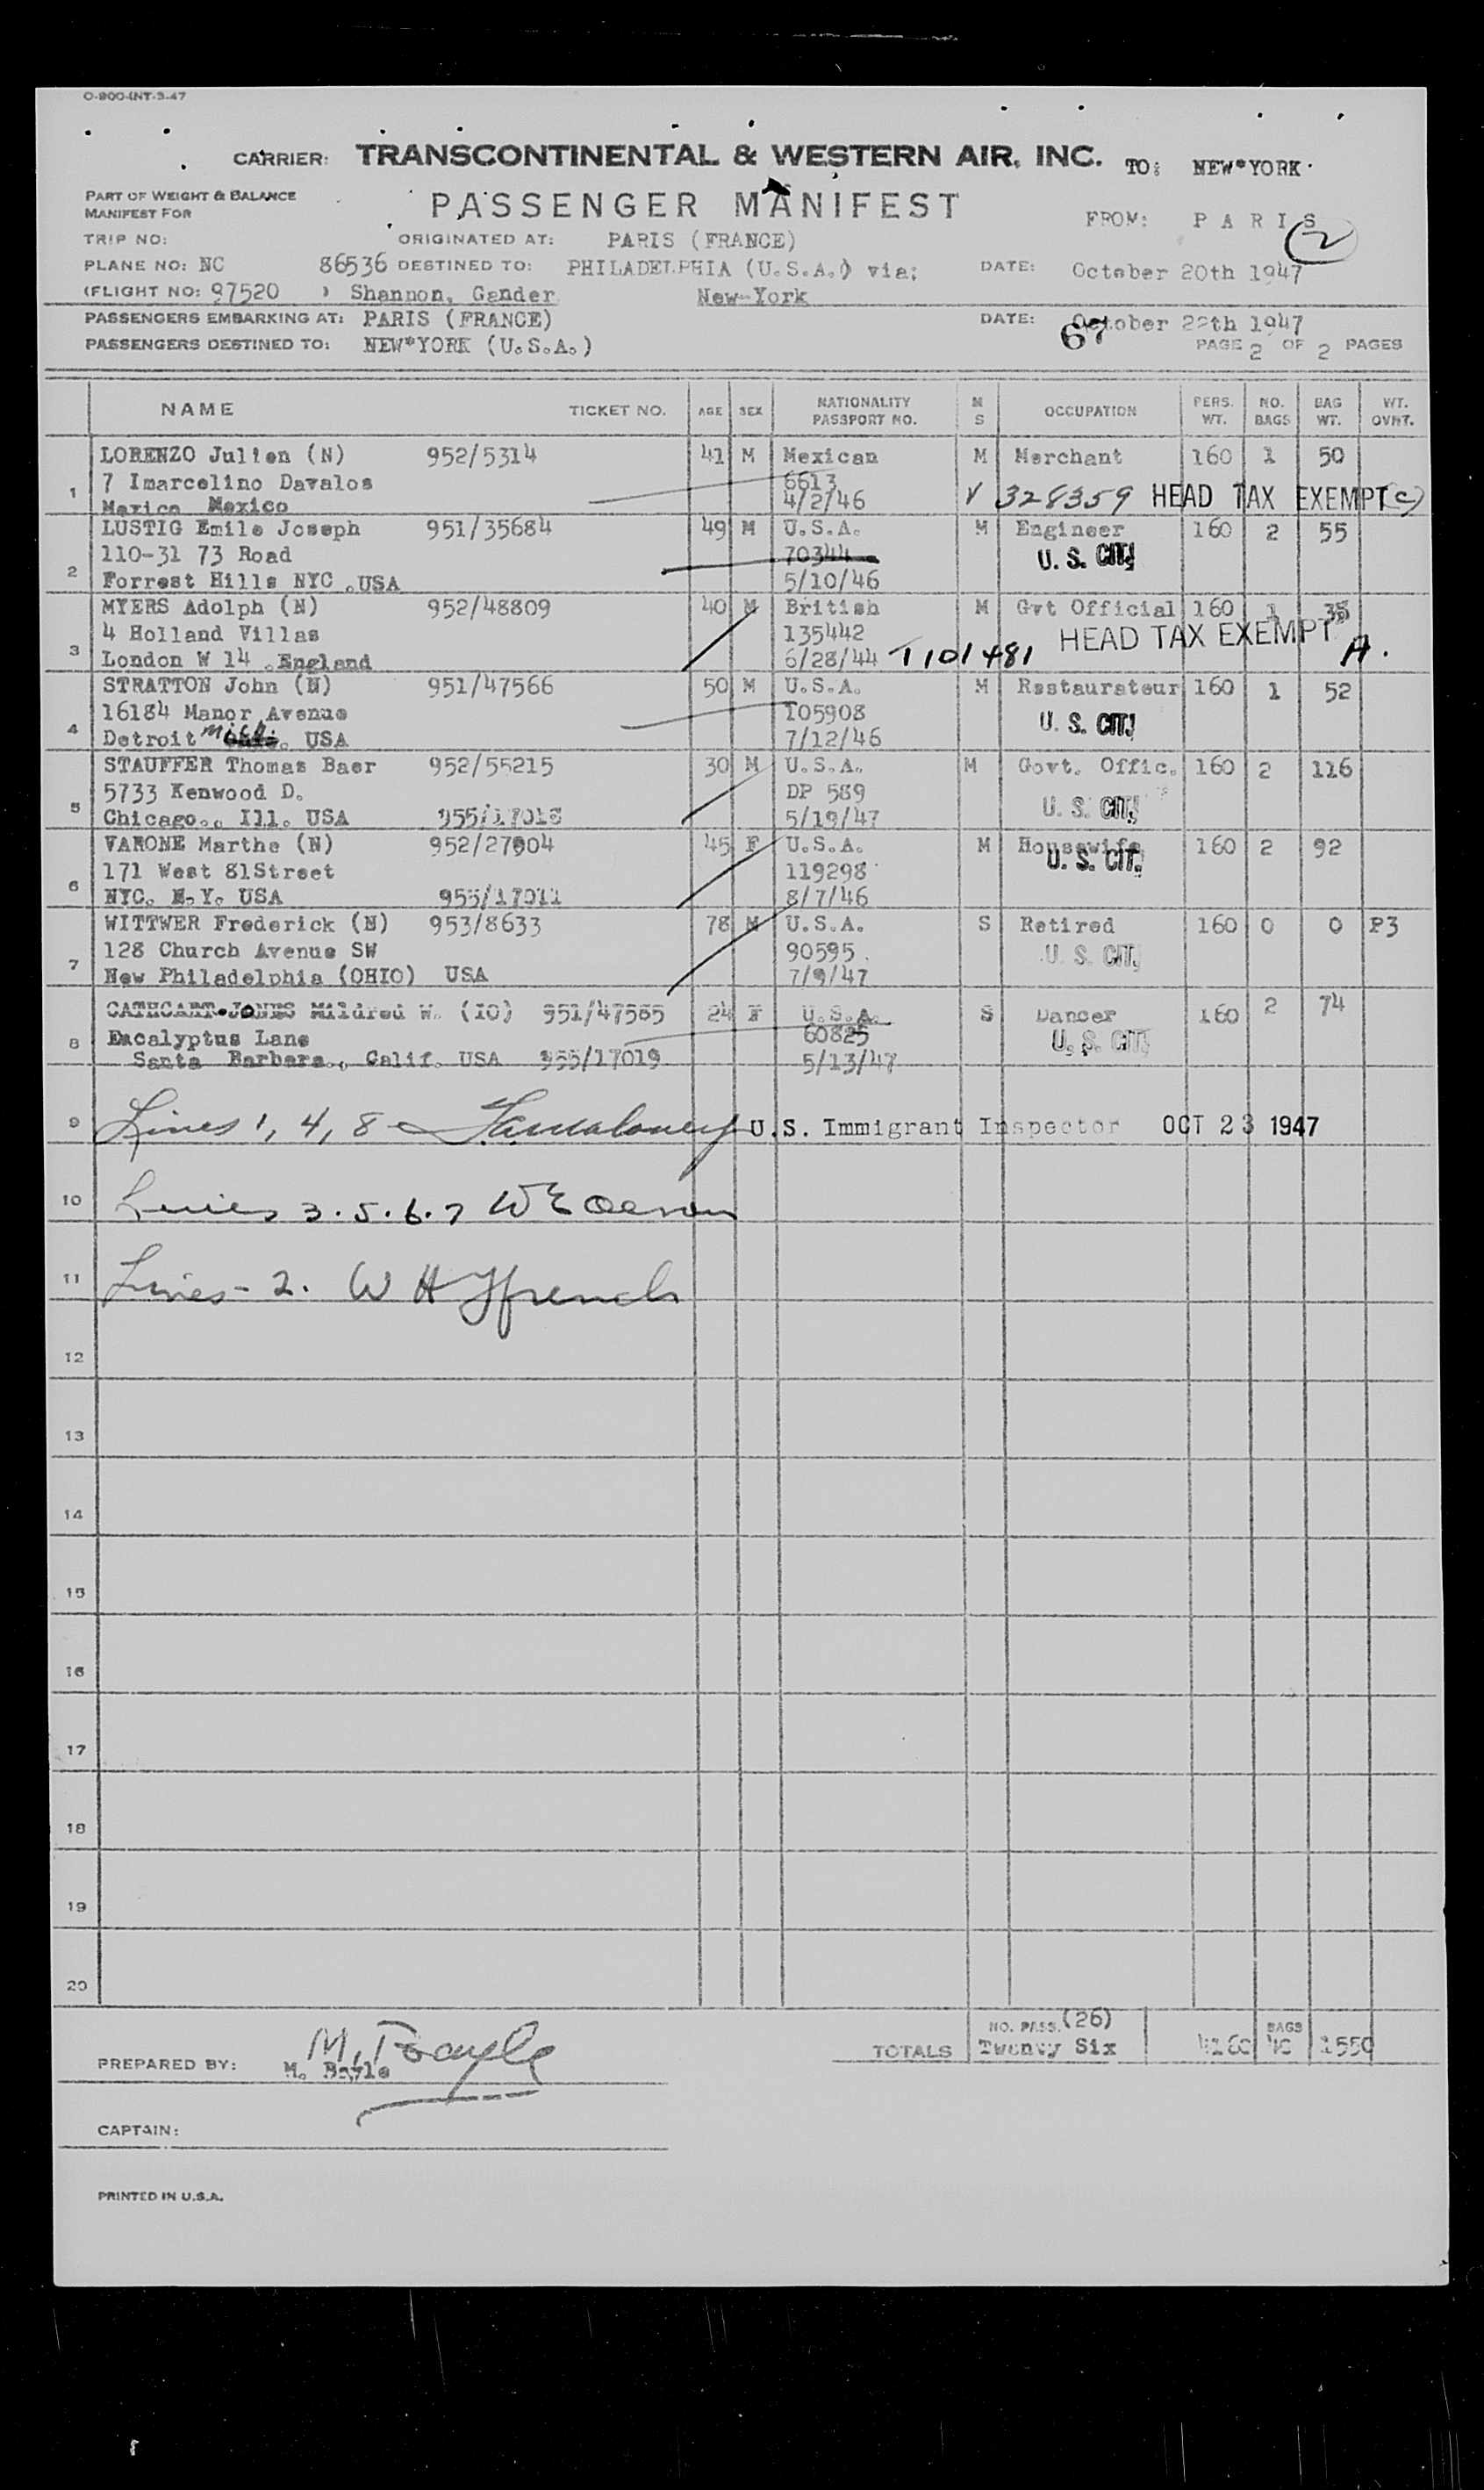 O-800-INT-3-47
CARRIER: TRANSCONTINENTAL & WESTERN AIR, INC. TO: NEW*YORK
PART OF WEIGHT & BALANCE
MANIFEST FOR
PASSENGER MANIFEST
FROM: PARIS
2
TRIP NO: ORIGINATED AT: PARIS (FRANCE)
PLANE NO: NC 86536 DESTINED TO: PHILADELPHIA (U.S.A.) via; DATE: October 20th 1947
(FLIGHT NO: 97520 ) Shannon, Gander New-York
PASSENGERS EMBARKING AT: PARIS (FRANCE) DATE: October 22th 1947
67
PASSENGERS DESTINED TO: NEW*YORK (U.S.A.) PAGE 2 OF 2 PAGES
NAME TICKET NO. AGE SEX NATIONALITY PASSPORT NO. M S OCCUPATION PERS. WT. NO. BAGS BAG WT. WT. OVHT.
LORENZO Julien (N) 952/5314 41 M Mexican M Merchant 160 1 50
1 7 Imarcelino Davalos 6613
Mexico Mexico 4/2/46 V 328359 HEAD TAX EXEMPT (c)
LUSTIG Emile Joseph 951/35684 49 M U.S.A. M Engineer 160 2 55
110-31 73 Road 70344 U. S. CIT.
2 Forrest Hills NYC .USA 5/10/46
MYERS Adolph (N) 952/48809 40 M British M Gvt Official 160 1
4 Holland Villas 135442 HEAD TAX EXEMPT
3 London W 14 .England 6/28/44 T 101481 A.
STRATTON John (N) 951/47566 50 M U.S.A. M Restaurateur 160 1 52
16184 Manor Avenue 105908 U. S. CIT.
4 Detroit Mich. USA 7/12/46
STAUFFER Thomas Baer 952/55215 30 M U.S.A. M Govt. Offic. 160 2 116
5733 Kenwood D. DP 589
5 Chicago., Ill. USA 955/17018 5/19/47 U. S. CIT.
VARONE Marthe (N) 952/27904 45 F U.S.A. M Housewife 160 2 92
171 West 81Street 119298 U. S. CIT.
6 NYC. N.Y. USA 955/17011 8/7/46
WITTWER Frederick (N) 953/8633 78 M U.S.A. S Retired 160 0 0 P3
128 Church Avenue SW 90595 U. S. CIT.
7 New Philadelphia (OHIO) USA 7/9/47
CATHCART-JONES Mildred W. (IO) 951/47565 24 F U.S.A. S Dancer 160 2 74
8 Eucalyptus Lane 60825 U. S. CIT.
Santa Barbara., Calif. USA 955/17019 5/13/47
9 Lines 1, 4, 8 U.S. Immigrant Inspector OCT 23 1947
10 Lines 3. 5. 6. 7
11 Lines - 2. W H French
12
13
14
15
16
17
18
19
20
NO. PASS. (26) BAGS
TOTALS Twenty Six 4160 40 1550
M. Bayle
PREPARED BY: M. Bayle
CAPTAIN:
PRINTED IN U.S.A.